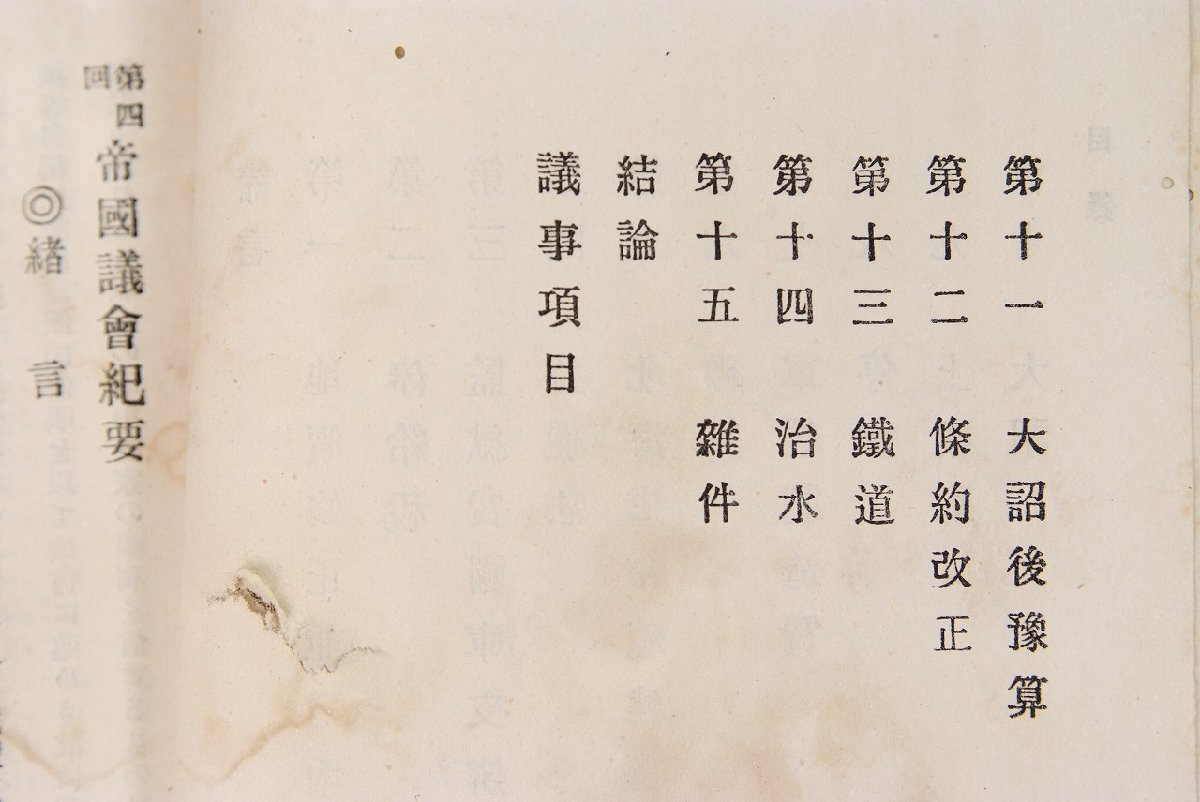 第十一 大詔後豫算
第十二 條約改正
第十三 鐵道
第十四 治水
第十五 雜件
結論
議事項目
第四回 帝國議會紀要
◎緒言